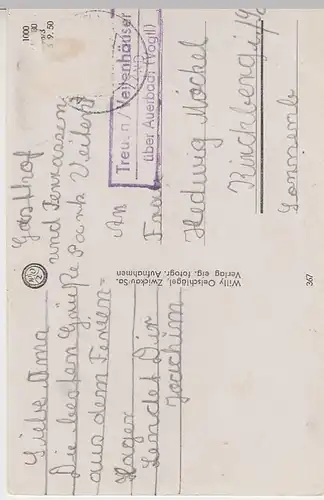 Gasthof
und Terrassen
Park Veiten
Liebe Oma
Die besten Grüße
aus dem Ferien-
lager
sendet Dir
Joachim
Treuen / Veitenhäuser
über Auerbach (Vogtl)
An
Frau
Hedwig Möckel
Kirchberg i/
Willy Oelschlägel, Zwickau/Sa.
Verlag eig. fotogr. Aufnahmen
367
1000
9. 50